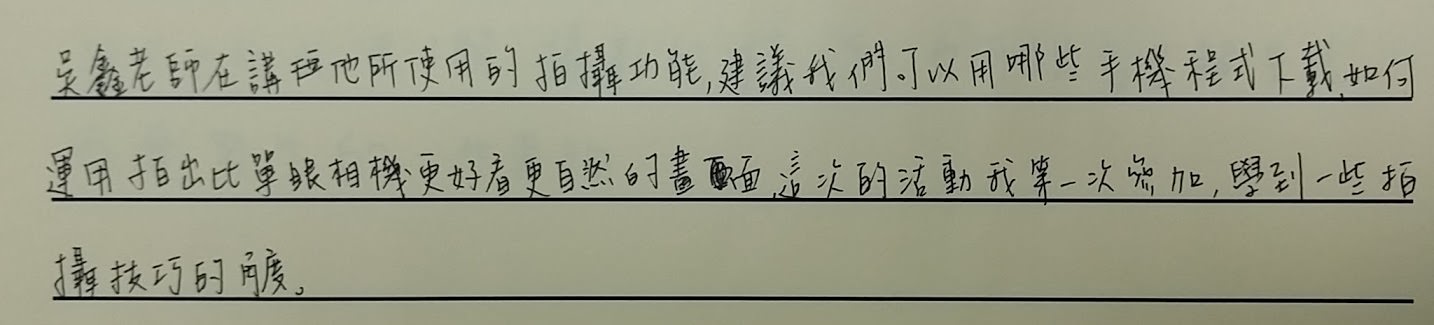 吳鑫老師在講述他所使用的拍攝功能,建議我們可以用哪些手機程式下載,如何
運用拍出比單眼相機更好看更自然的畫面,這次的活動我第一次參加,學到一些拍
攝技巧的角度。